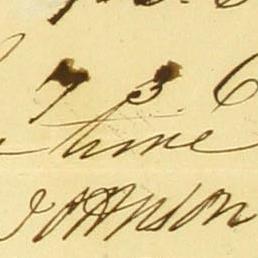 7 3. 6
time
Johnson